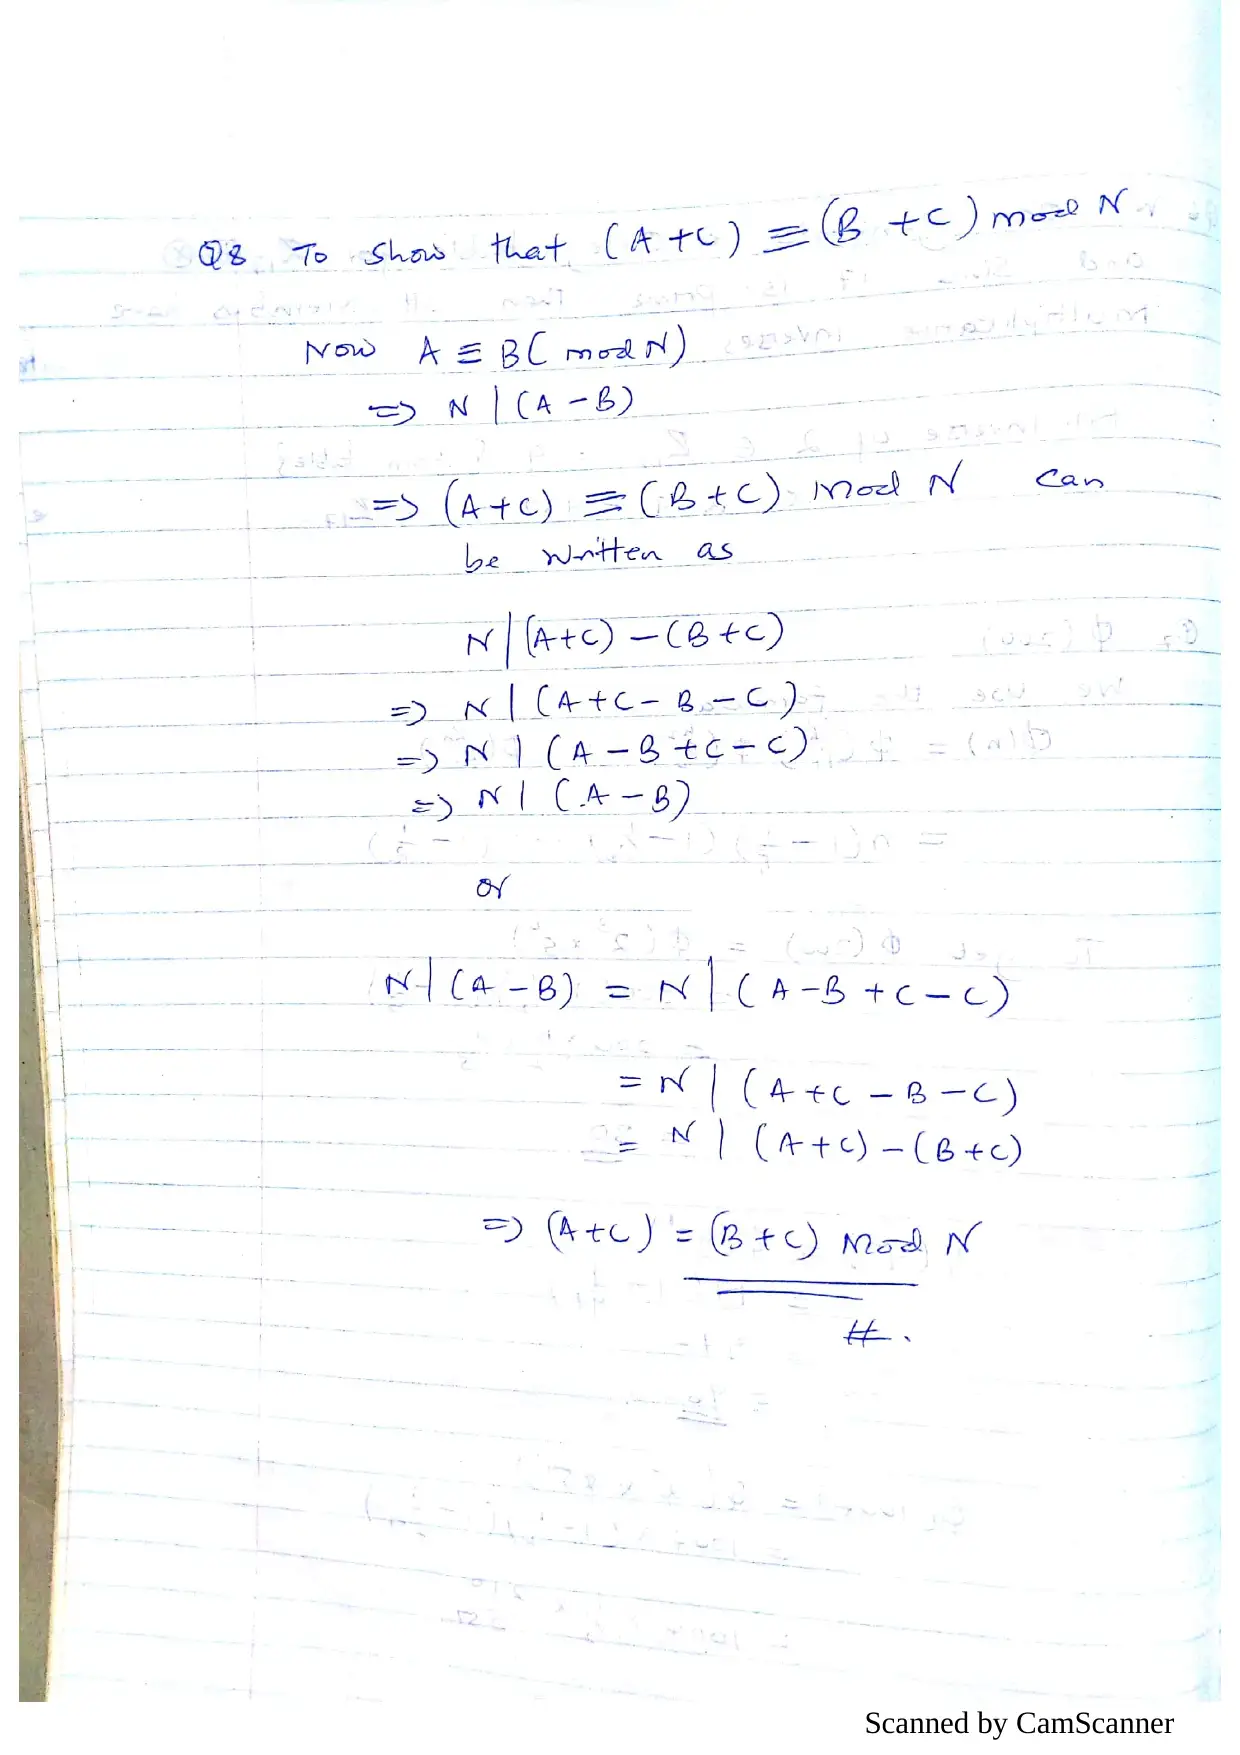 Q8 To show that (A+C) ≡ (B+C) mod N
Now A ≡ B( mod N)
=> N | (A-B)
=> (A+C) ≡ (B+C) mod N can
be written as
N | (A+C) - (B+C)
=> N | (A+C-B-C)
=> N | (A-B+C-C)
=> N | (A-B)
or
N | (A-B) = N | (A-B+C-C)
= N | (A+C-B-C)
= N | (A+C) - (B+C)
=> (A+C) = (B+C) Mod N
#.
Scanned by CamScanner